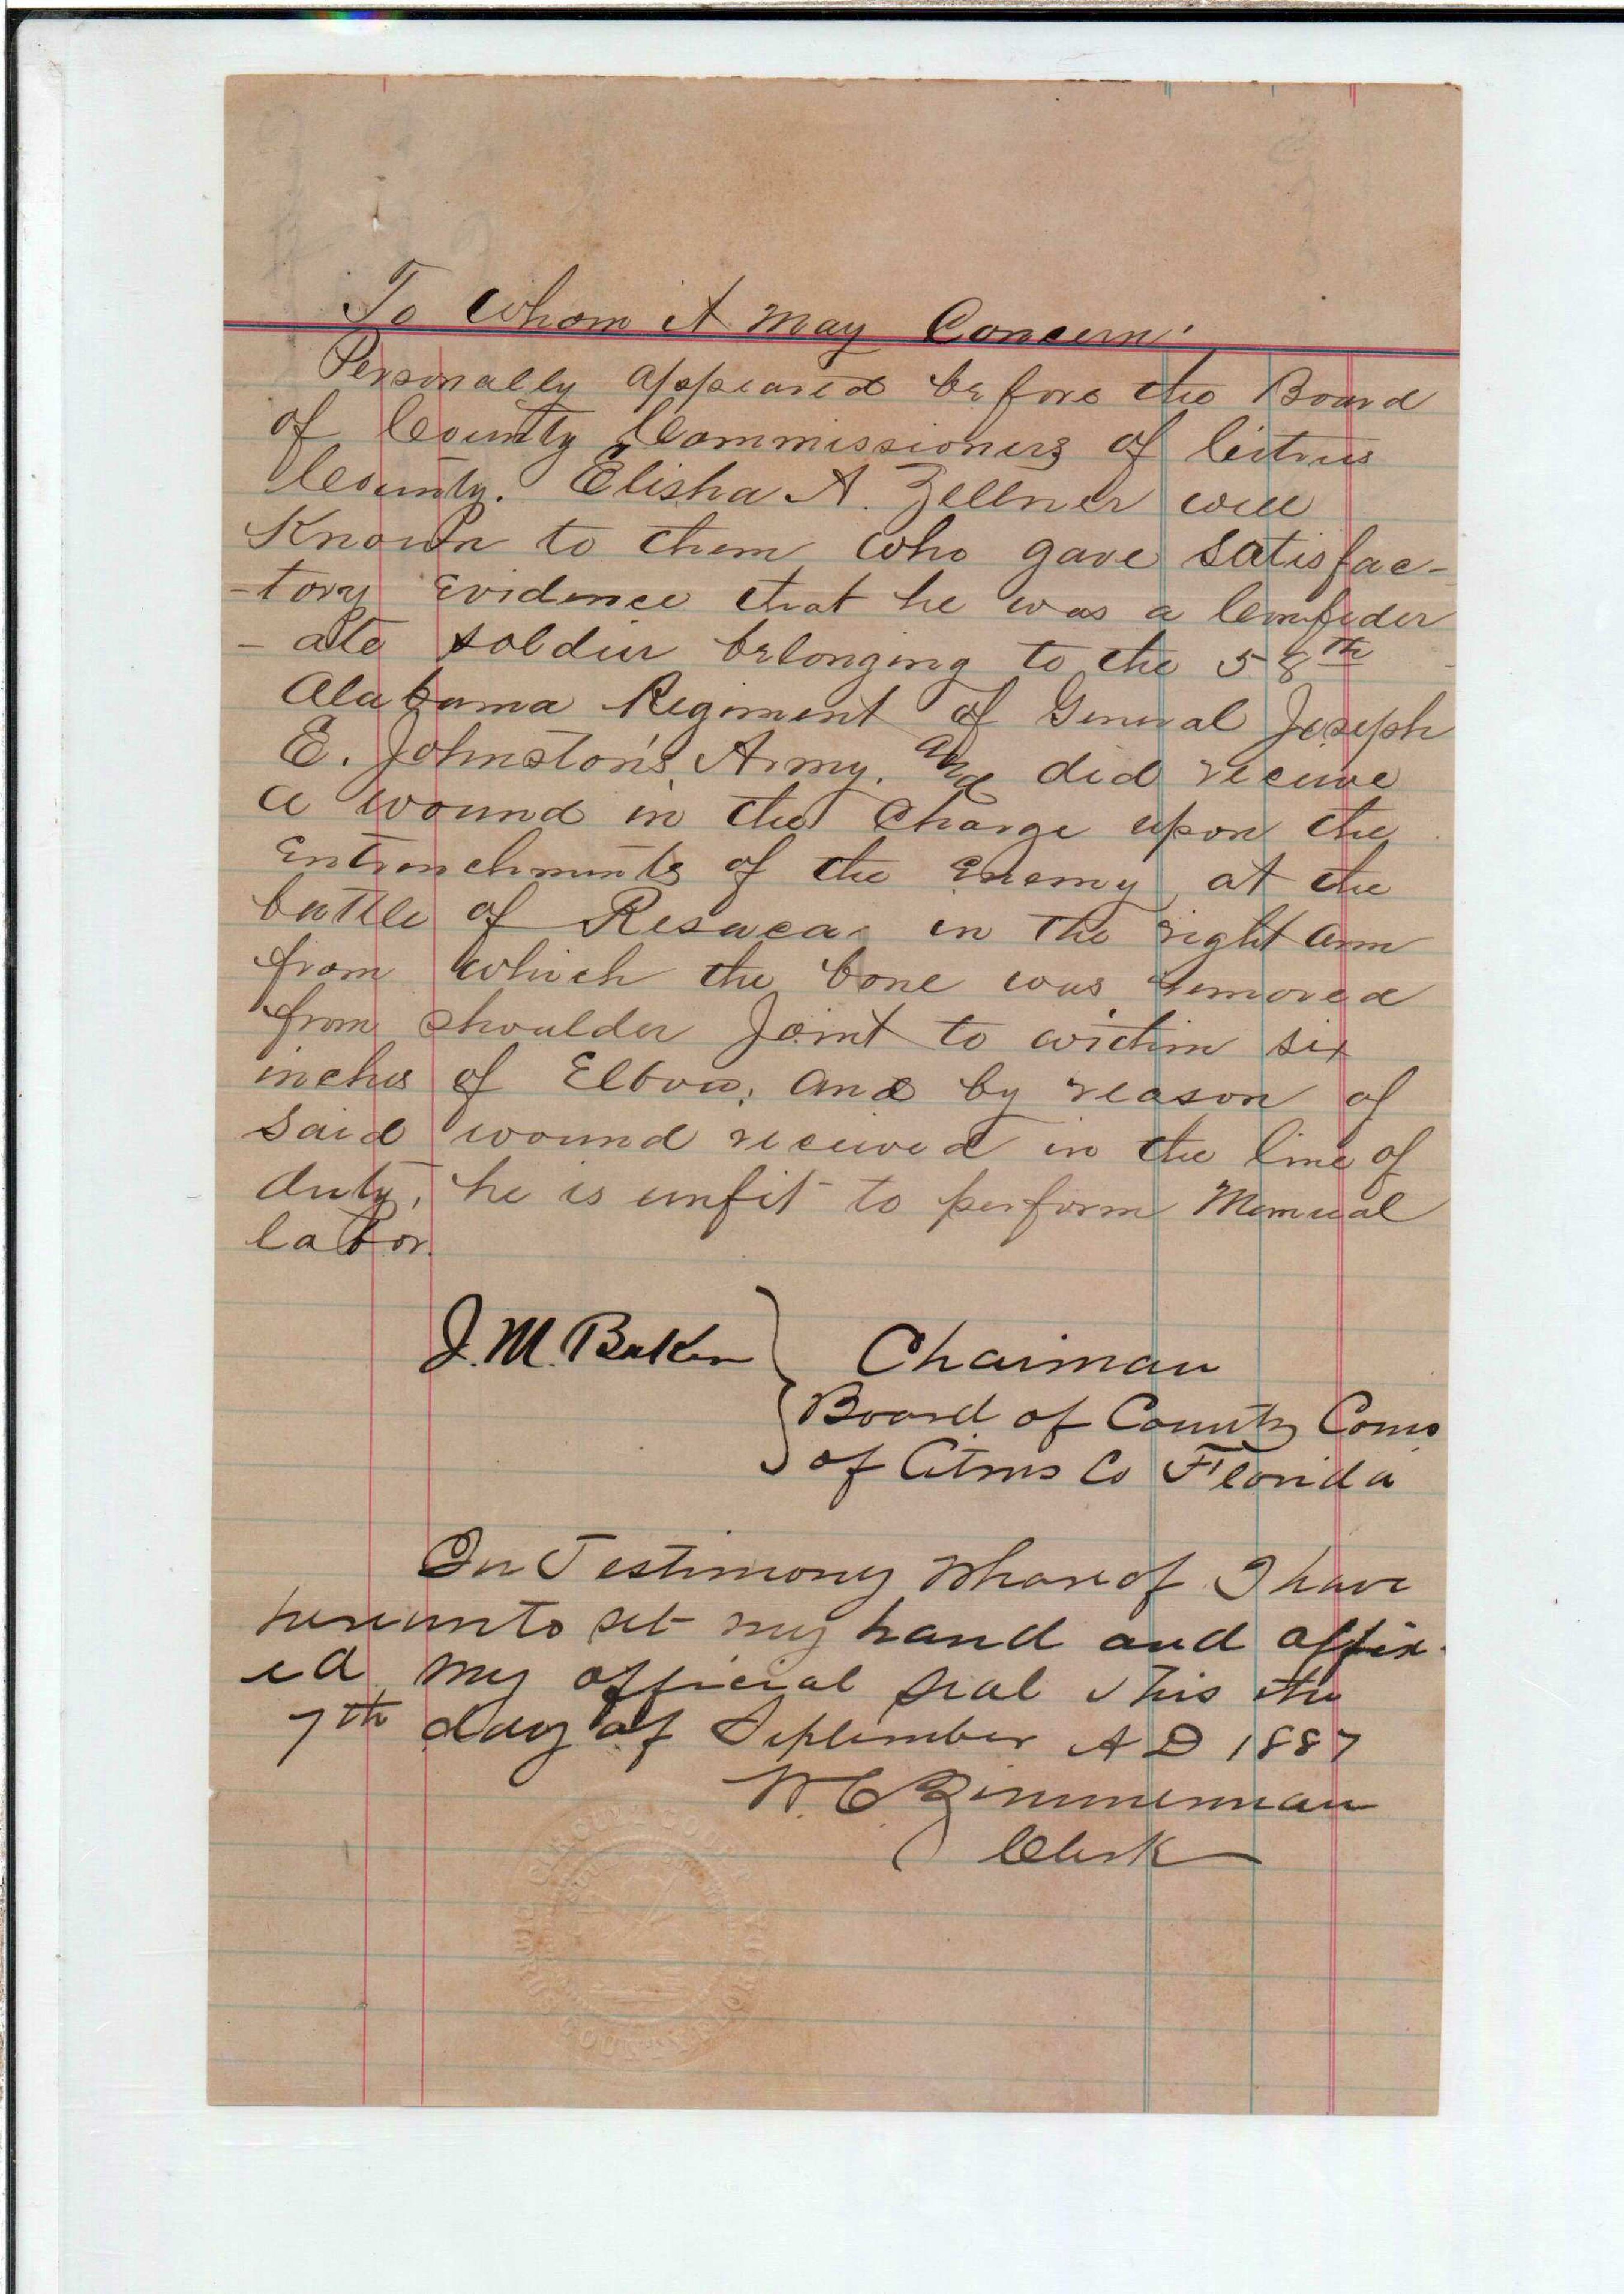 To Whom it May Concern:
Personally appeared before the Board
of County Commissioners of Citrus
County. Elisha A. Zellner well
Known to them who gave satisfac-
-tory evidence that he was a Confeder
- ate soldier belonging to the 58th
Alabama Regiment of General Joseph
E. Johnston's Army. and did receive
a wound in the Charge upon the
Entrenchments of the Enemy, at the
battle of Resaca. in the right arm
from which the bone was removed
from shoulder Joint to within six
inches of Elbow; and by reason of
said wound received in the line of
duty, he is unfit to perform Manual
labor.
J. M. Baker } Chairman
Board of County Coms
of Citrus Co Florida
In Testimony Whareof I have
hereunto set my hand and affix-
ed my official seal this the
7th day of September A D 1887
W. C. Zimmerman
Clerk
CIRCUIT COURT